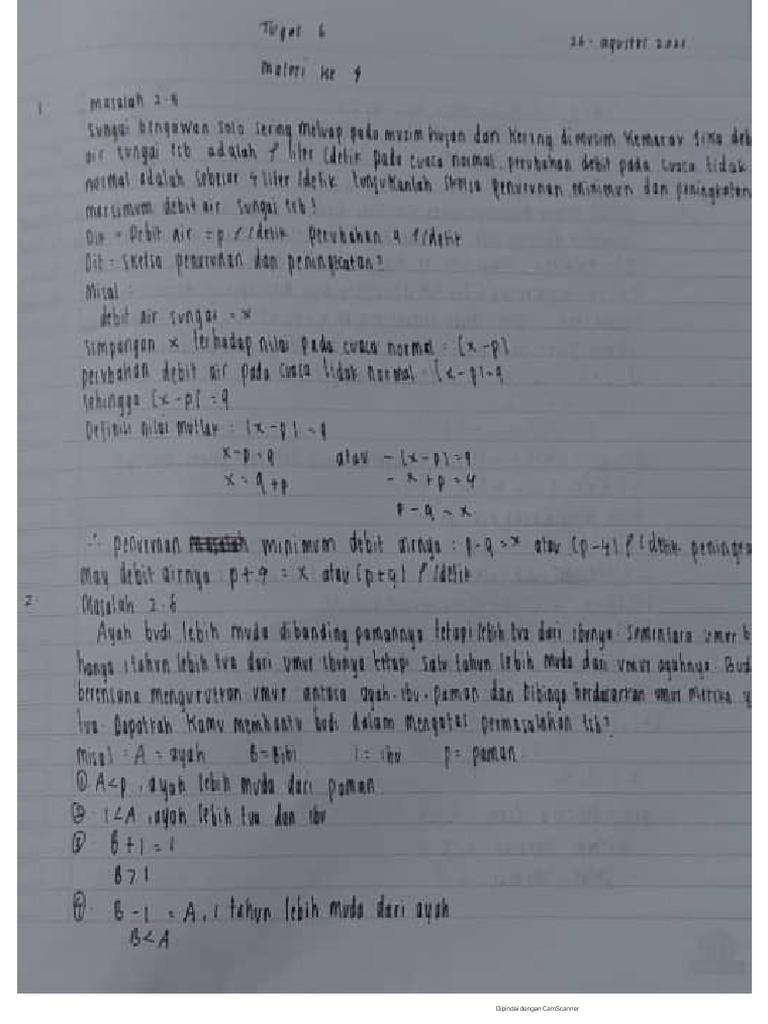 Tugas 6
26 - agustus 2021
Materi ke 4
1 Masalah 2.4
Sungai bengawan solo sering meluap pada musim hujan dan kering dimusim kemarau Jika deb
air sungai tsb adalah p liter /detik pada cuaca normal. perubahan debit pada cuaca tidak
normal adalah sebesar q liter /detik tunjukkanlah sketsa penurunan minimum dan peningkatan
marsimum debit air sungai tsb!
Dik = Debit air = p l/detik perubahan q l/detik
Dit = Sketsa penurunan dan peningkatan?
Misal :
debit air sungai = x
Simpangan x terhadap nilai pada cuaca normal = |x-p|
perubahan debit air pada cuaca tidak normal = |x-p|=q
sehingga |x-p| = q
Definisi nilai mutlak : |x-p| = q
x-p=q atau -(x-p)=q
x = q+p -x+p=q
p-q=x
∴ penurunan minimum debit airnya : p-q=x atau (p-q) l/detik peninga
may debit airnya p+q = x atau (p+q) l/detik
2. Masalah 2.6
Ayah budi lebih muda dibanding pamannya tetapi lebih tua dari ibunya. Sementara umur b
hanya 1 tahun lebih tua dari umur ibunya tetapi satu tahun lebih muda dari umur ayahnya. Bud
berencana mengurutkan umur antara ayah, ibu, paman dan bibinya berdasarkan umur mereka y
tua. Dapatkah kamu membantu budi dalam mengatasi permasalahan tsb?
misal = A = ayah B = Bibi I = ibu p = paman
① A<p, ayah lebih muda dari paman
② I<A, ayah lebih tua dari ibu
③ B+1=I
B>I
④ B-1=A, 1 tahun lebih muda dari ayah
B<A
Dipindai dengan CamScanner